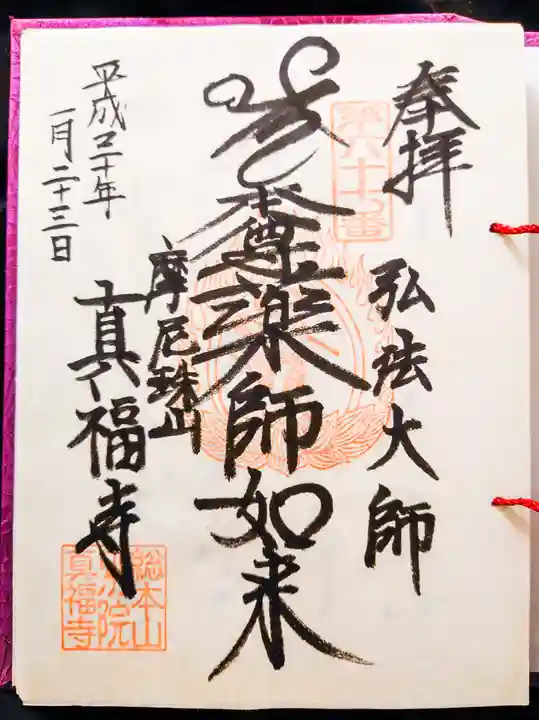 奉拝
弘法大師
本尊薬師如来
摩尼珠山
真福寺
平成二十年
一月二十三日
総本山
真福寺